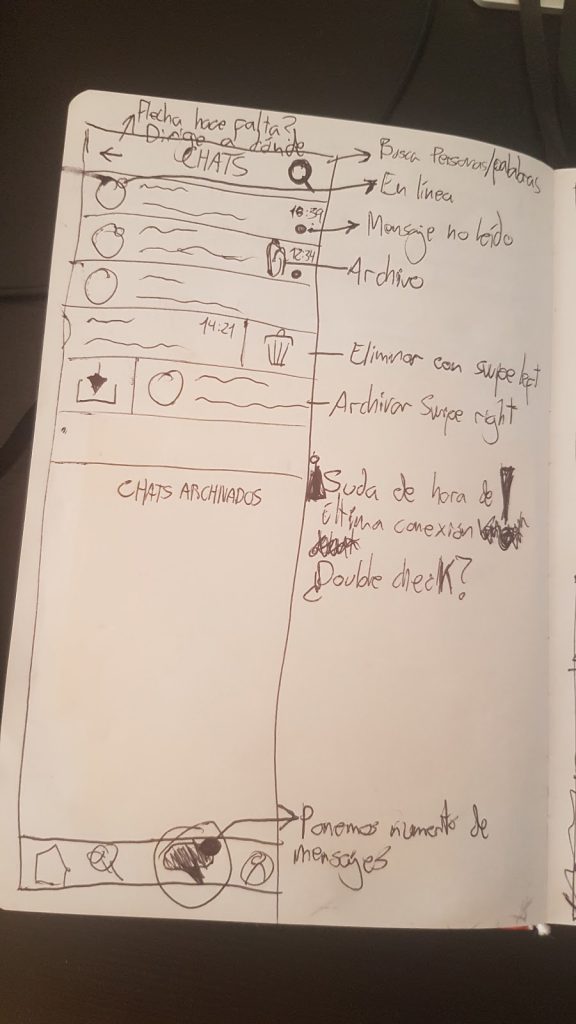 Flecha hace falta?
Dirige a dónde
CHATS
Busca Personas/palabras
En línea
16:39
Mensaje no leído
12:34
Archivo
14:21
Eliminar con swipe left
Archivar Swipe right
CHATS ARCHIVADOS
Suda de hora de
última conexión
¿Double check?
Ponemos numerito de
mensajes